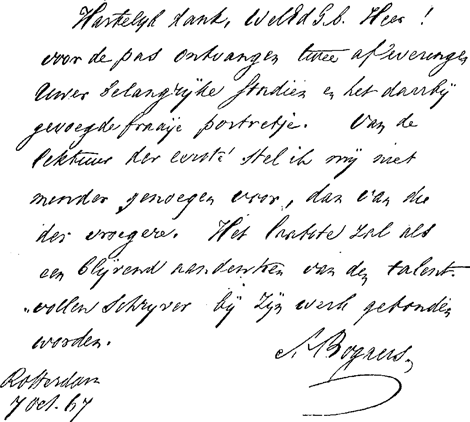 Hartelyk dank, WelEdG.b. Heer!
voor de pas ontvangen twee afleveringen
Uwer belangrijke studiën en het daarbij
gevoegde fraaije portretje. Van de
lektuur der eerste stel ik mij niet
minder genoegen voor, dan van die
der vroegere. Het laatste zal als
een blijvend aandenken van den talent-
vollen Schrijver bij zijn werk gebonden
worden.
Bogaers
Rotterdam
7 Oct. 67